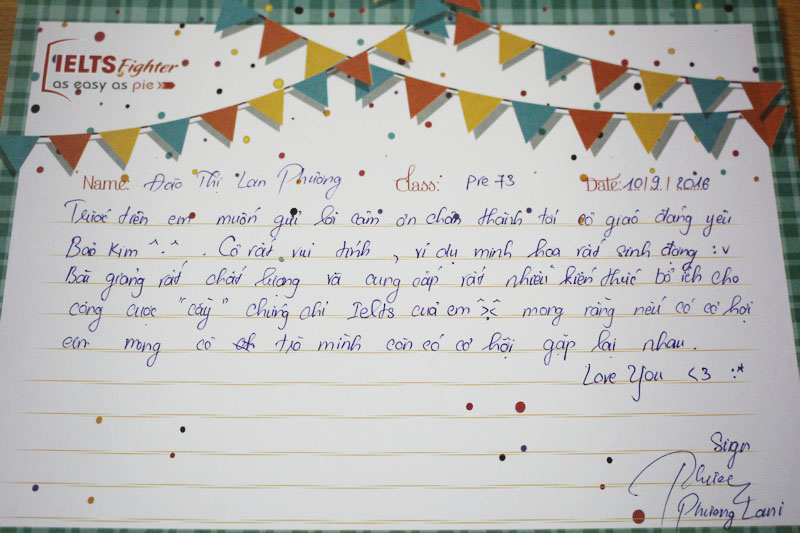 IELTS Fighter
as easy as pie
Name: Đào Thị Lan Phương Class: Pre 73 Date: 10/9/2016
Trước tiên em muốn gửi lời cảm ơn chân thành tới cô giáo đáng yêu
Bảo Kim ^.^ . Cô rất vui tính , ví dụ minh họa rất sinh động :v
Bài giảng rất chất lượng và cung cấp rất nhiều kiến thức bổ ích cho
công cuộc "cày" chứng chỉ Ielts của em ^>.<^ mong rằng nếu có cơ hội
em mong cô trò mình còn có cơ hội gặp lại nhau.
Love You <3 :*
Sign
Phương Lani